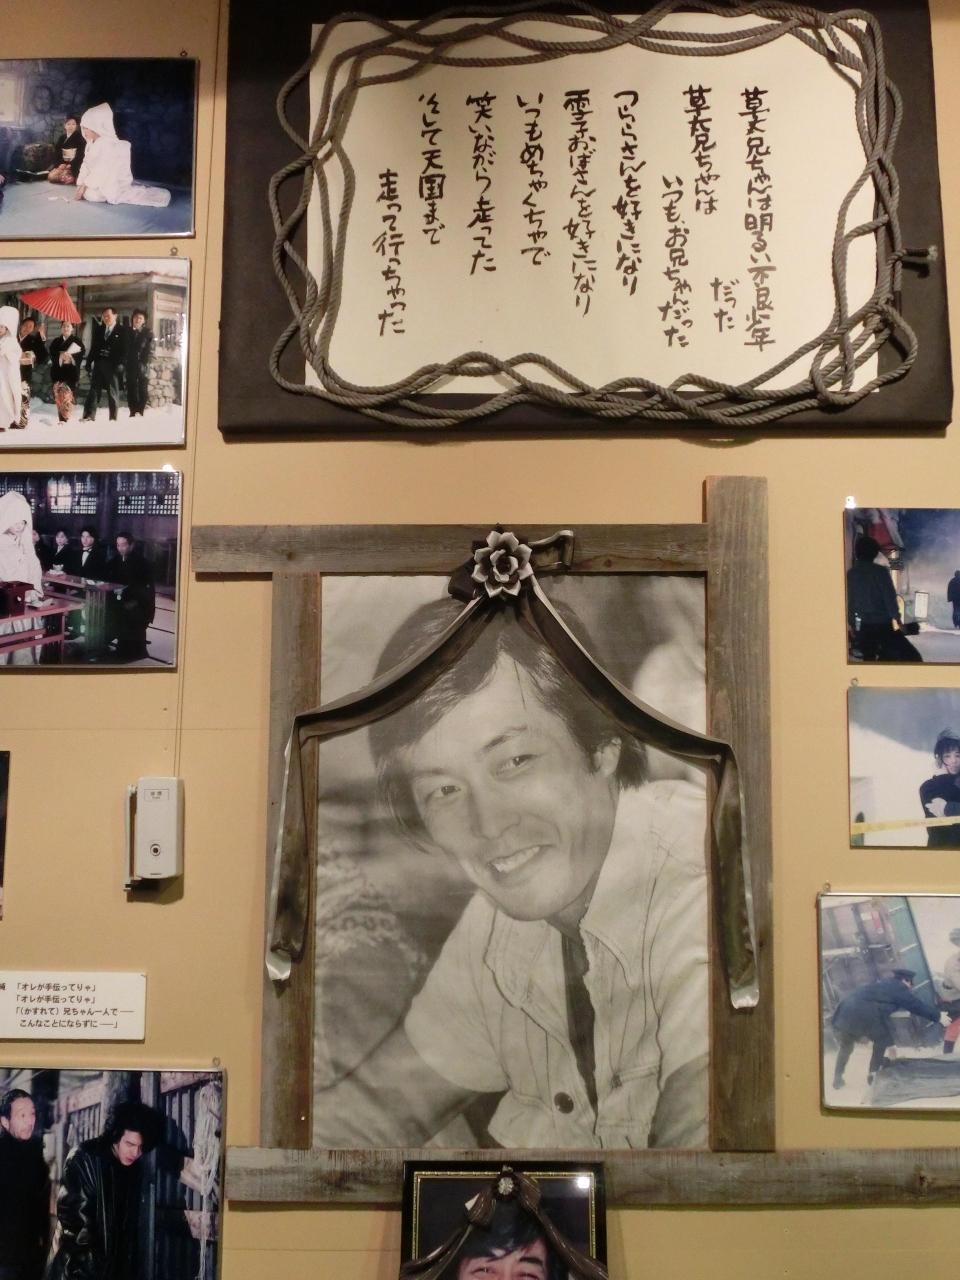 草太兄ちゃんは明るい不良少年
だった
草太兄ちゃんは
いつも、お兄ちゃんだった
つららさんを好きになり
雪子おばさんを好きになり
いつもめちゃくちゃで
笑いながら走ってた
そして天国まで
走って行っちゃった
純 「オレが手伝ってりゃ」
「オレが手伝ってりゃ」
「(かすれて)兄ちゃん一人で──
こんなことにならずに──」